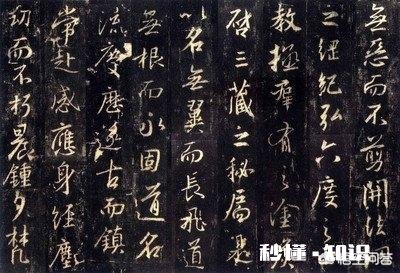 無惡而不剪開法網
之綱紀弘六度之
教拯羣有之塗
啓三藏之秘扃是
以名無翼而長飛道
無根而永固道名
流慶歷遂古而鎮
常赴感應身經塵
劫而不朽晨鍾夕梵
秒懂·知识
悟空问答